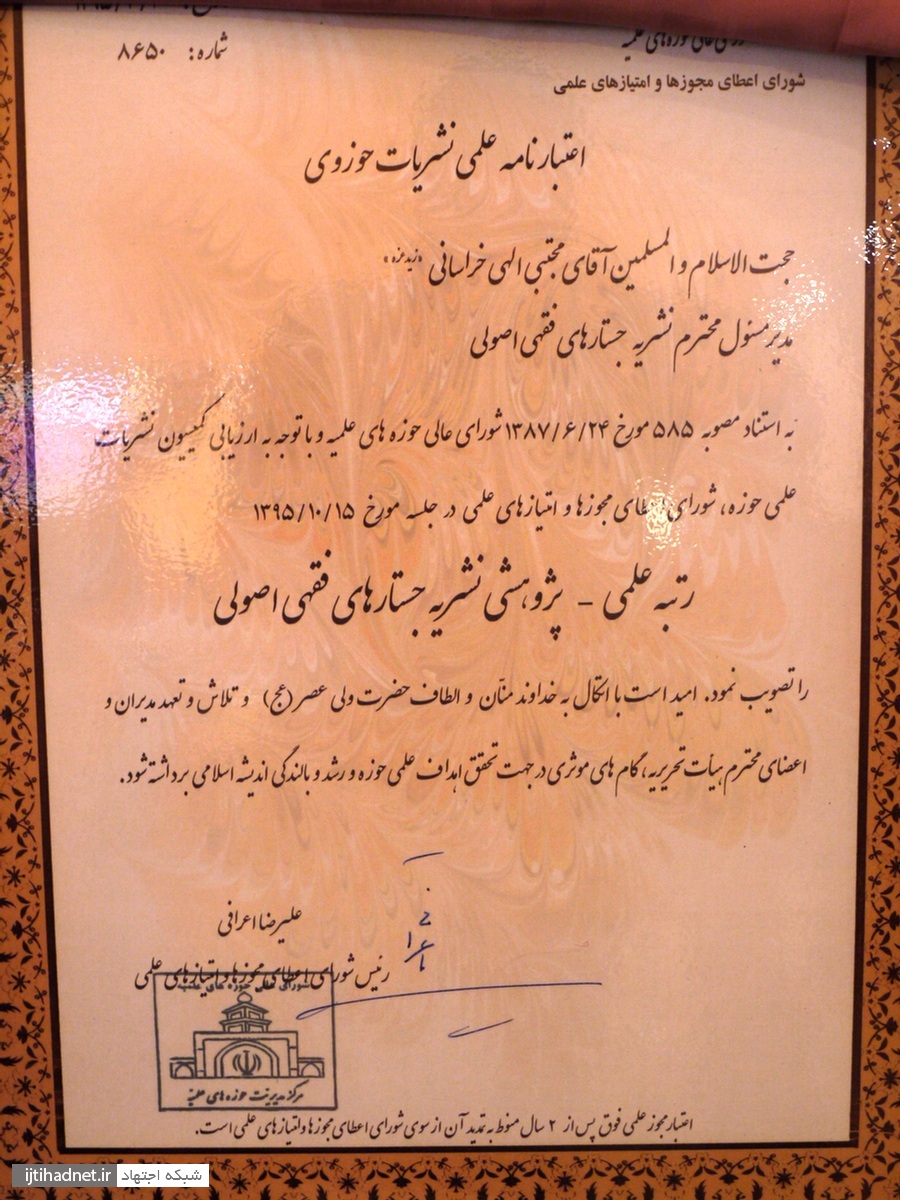 شماره: ۸۶۵۰
شورای عالی حوزه‌های علمیه
شورای اعطای مجوزها و امتیازهای علمی
اعتبارنامه علمی نشریات حوزوی
حجت الاسلام و المسلمین آقای مجتبی الهی خراسانی «زید عزه»
مدیر مسئول محترم نشریه جستارهای فقهی اصولی
به استناد مصوبه ۵۸۵ مورخ ۱۳۸۷/۶/۲۴ شورای عالی حوزه های علمیه و با توجه به ارزیابی کمیسیون نشریات
علمی حوزه، شورای اعطای مجوزها و امتیازهای علمی در جلسه مورخ ۱۳۹۵/۱۰/۱۵
رتبه علمی - پژوهشی نشریه جستارهای فقهی اصولی
را تصویب نمود. امید است با اتکال به خداوند منّان و الطاف حضرت ولی عصر (عج) و تلاش و تعهد مدیران و
اعضای محترم هیأت تحریریه، گام های موثری در جهت تحقق اهداف علمی حوزه و رشد و بالندگی اندیشه اسلامی برداشته شود.
علیرضا اعرافی
رئیس شورای اعطای مجوزها و امتیازهای علمی
شورای عالی حوزه های علمیه
مرکز مدیریت حوزه های علمیّه
اعتبار مجوز علمی فوق پس از ۲ سال منوط به تمدید آن از سوی شورای اعطای مجوزها و امتیازهای علمی است.
شبکه اجتهاد ijtihadnet.ir